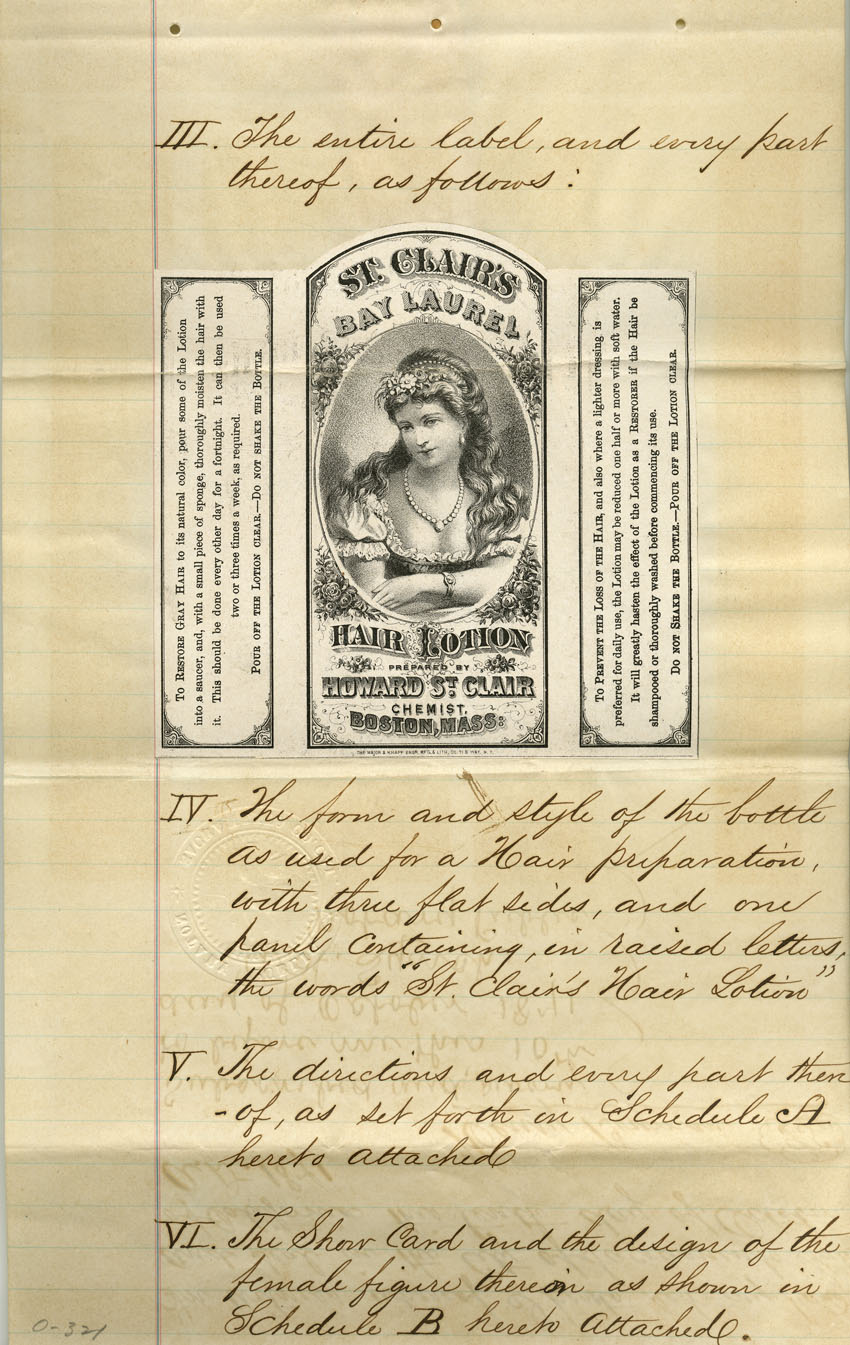 III. The entire label, and every part
thereof, as follows:
To Restore Gray Hair to its natural color, pour some of the Lotion
into a saucer, and, with a small piece of sponge, thoroughly moisten the hair with
it. This should be done every other day for a fortnight. It can then be used
two or three times a week, as required.
Pour off the Lotion clear.—Do not shake the Bottle.
ST. CLAIR'S
BAY LAUREL
HAIR LOTION
PREPARED BY
HOWARD ST. CLAIR
CHEMIST,
BOSTON, MASS:
THE MAJOR & KNAPP ENGR. MFG. & LITH. CO. 71 B'WAY, N.Y.
To Prevent the Loss of the Hair, and also where a lighter dressing is
preferred for daily use, the Lotion may be reduced one half or more with soft water.
It will greatly hasten the effect of the Lotion as a Restorer if the Hair be
shampooed or thoroughly washed before commencing its use.
Do not Shake the Bottle.—Pour off the Lotion clear.
IV. The form and style of the bottle
as used for a Hair preparation,
with three flat sides, and one
panel containing, in raised letters,
the words "St. Clair's Hair Lotion"
V. The directions and every part there
-of, as set forth in Schedule A
hereto attached
VI. The Show Card and the design of the
female figure therein as shown in
Schedule B hereto attached.
0-321